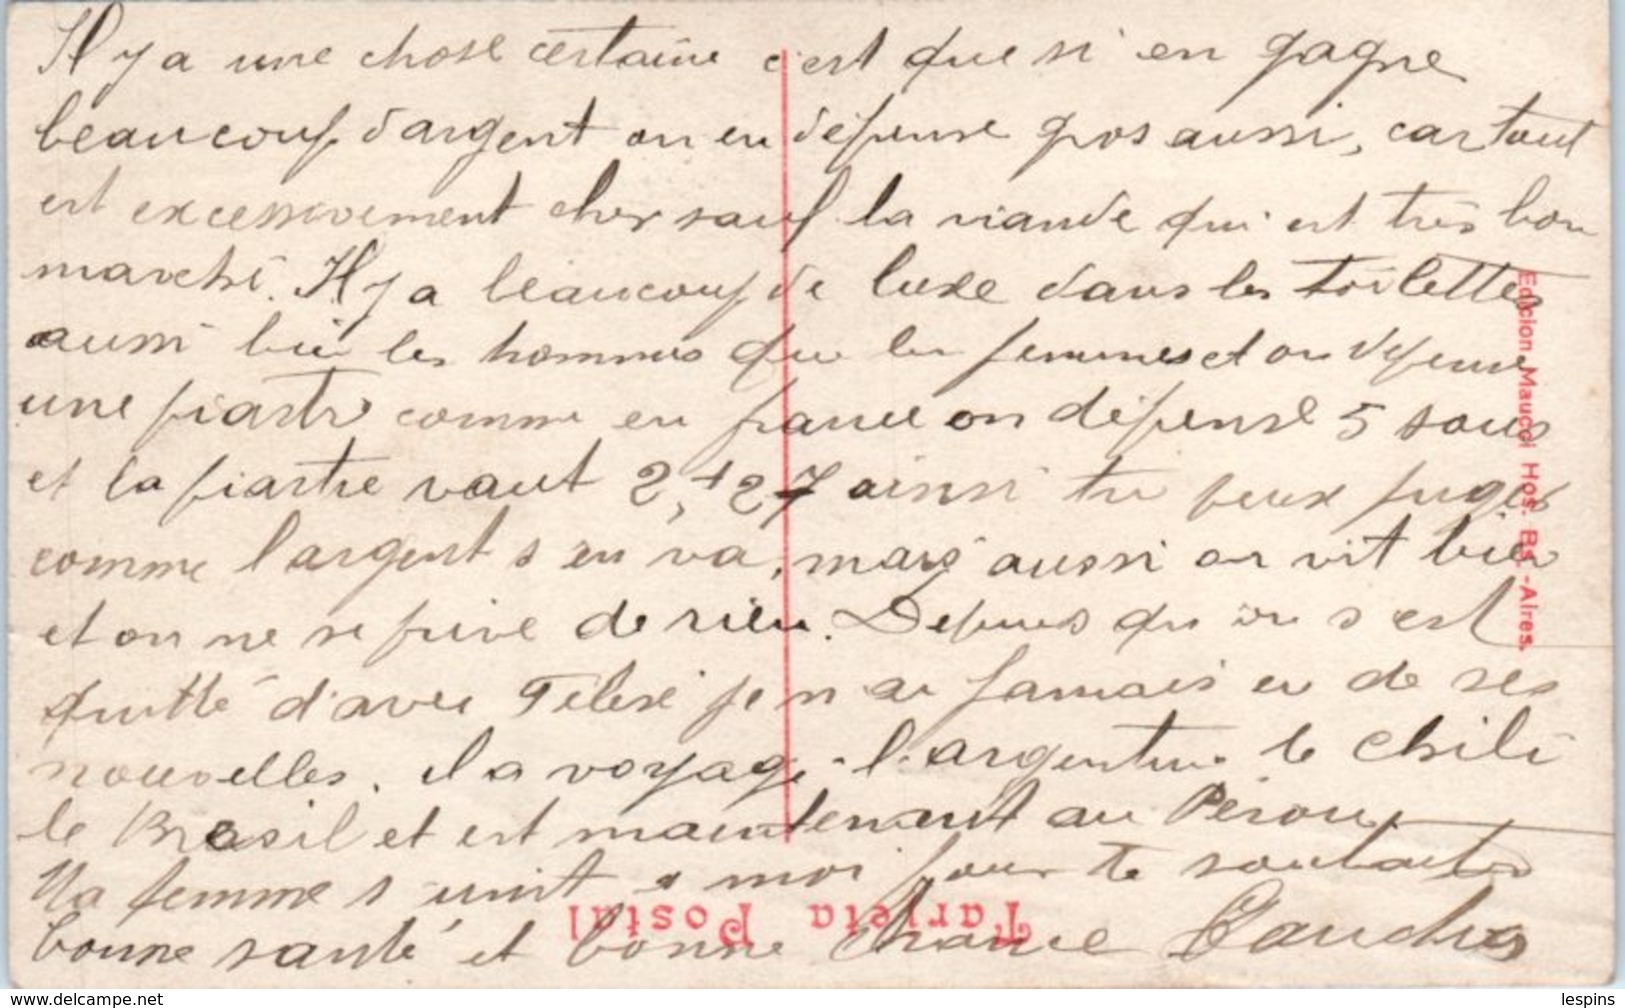 Il y a une chose certaine c'est que si en gagne
beaucoup d'argent on en dépense gros aussi, car tout
est excessivement cher sauf la viande qui est très bon
marché. Il y a beaucoup de luxe dans les toilettes
aussi bien les hommes que les femmes et on dépense
une piastre comme en france on dépense 5 sous
et la piastre vaut 2,+27 ainsi tu peux juger
comme l'argent s'en va, mais aussi on vit bien
et on ne se prive de rien. Depuis qu'on s'est
quitté d'avec je n'ai jamais eu de ses
nouvelles. il a voyagé l'argentine le Chili
le Bresil et est maintenant au Pérou
Ma femme s'unit a moi pour te souhaiter
bonne santé et bonne chance
Tarjeta Postal
Edicion Maucci Hos. Bs.-Aires.
www.delcampe.net
lespins